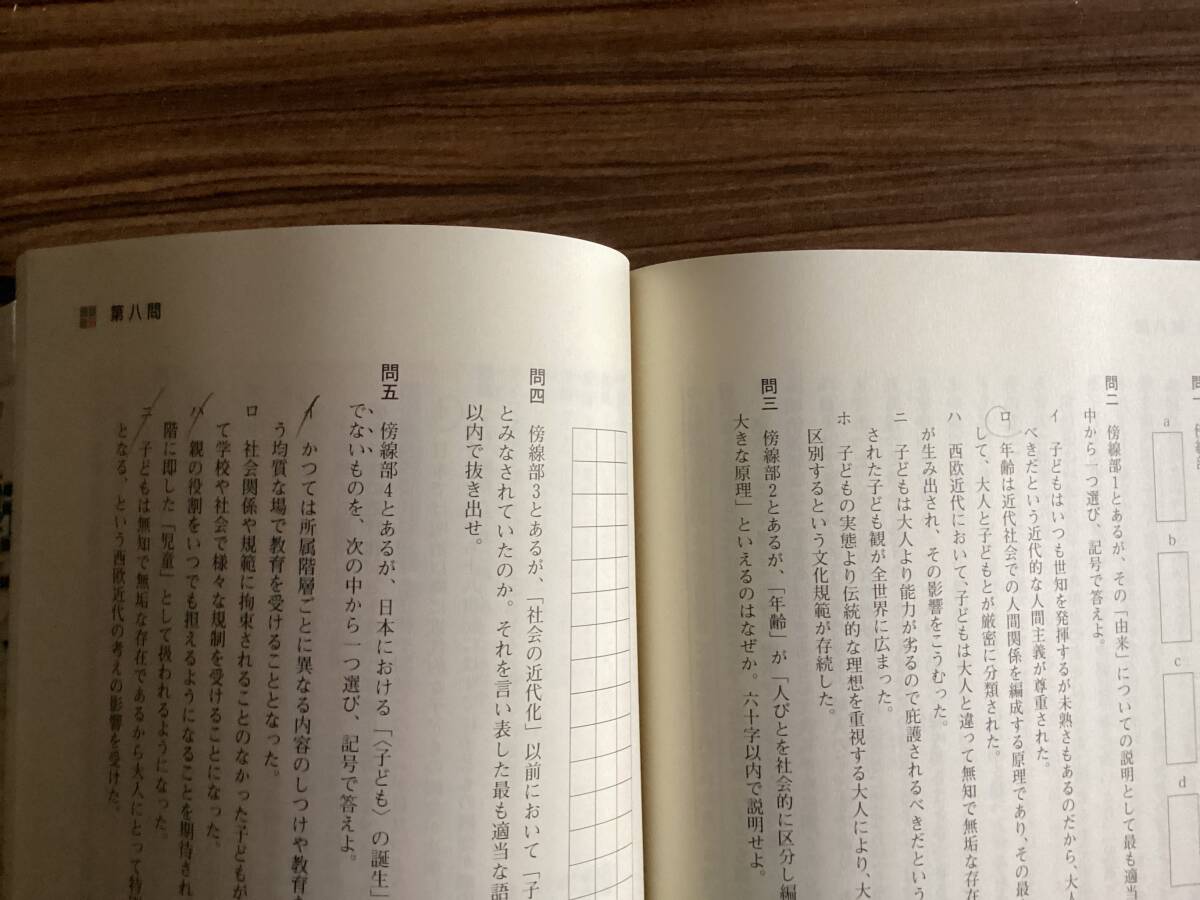 問一
a
b
c
d
問二 傍線部1とあるが、その「由来」についての説明として最も適当
中から一つ選び、記号で答えよ。
イ 子どもはいつも世知を発揮するが未熟さもあるのだから、大人
べきだという近代的な人間主義が尊重された。
ロ 年齢は近代社会での人間関係を編成する原理であり、その最
して、大人と子どもとが厳密に分類された。
ハ 西欧近代において、子どもは大人と違って無知で無垢な存在
が生み出され、その影響をこうむった。
ニ 子どもは大人より能力が劣るので庇護されるべきだという
された子ども観が全世界に広まった。
ホ 子どもの実態より伝統的な理想を重視する大人により、大
区別するという文化規範が存続した。
問三 傍線部2とあるが、「年齢」が「人びとを社会的に区分し編
大きな原理」といえるのはなぜか。六十字以内で説明せよ。
第八問
問四 傍線部3とあるが、「社会の近代化」以前において「子
とみなされていたのか。それを言い表した最も適当な語
以内で抜き出せ。
問五 傍線部4とあるが、日本における「〈子ども〉の誕生」
でないものを、次の中から一つ選び、記号で答えよ。
イ かつては所属階層ごとに異なる内容のしつけや教育
う均質な場で教育を受けることとなった。
ロ 社会関係や規範に拘束されることのなかった子どもが
て学校や社会で様々な規制を受けることになった。
ハ 親の役割をいつでも担えるようになることを期待され
階に即した「児童」として扱われるようになった。
ニ 子どもは無知で無垢な存在であるから大人にとって特
となる、という西欧近代の考えの影響を受けた。